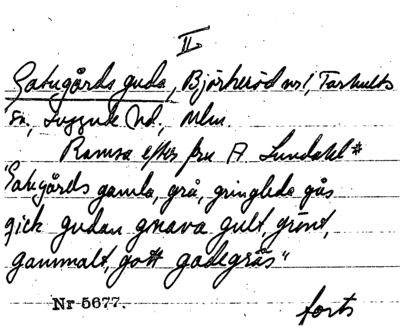 II
Gatugårds guda, Björkeröd nr 1, Farhults
sn, Luggude hd, Mlm.
Ramsa efter fru A Lundahl*
"Gatugårds gamla, grå, gringlede gås
gick gudan gnava gult, grönt,
gammalt, gott gadegräs"
Nr 5677.
forts